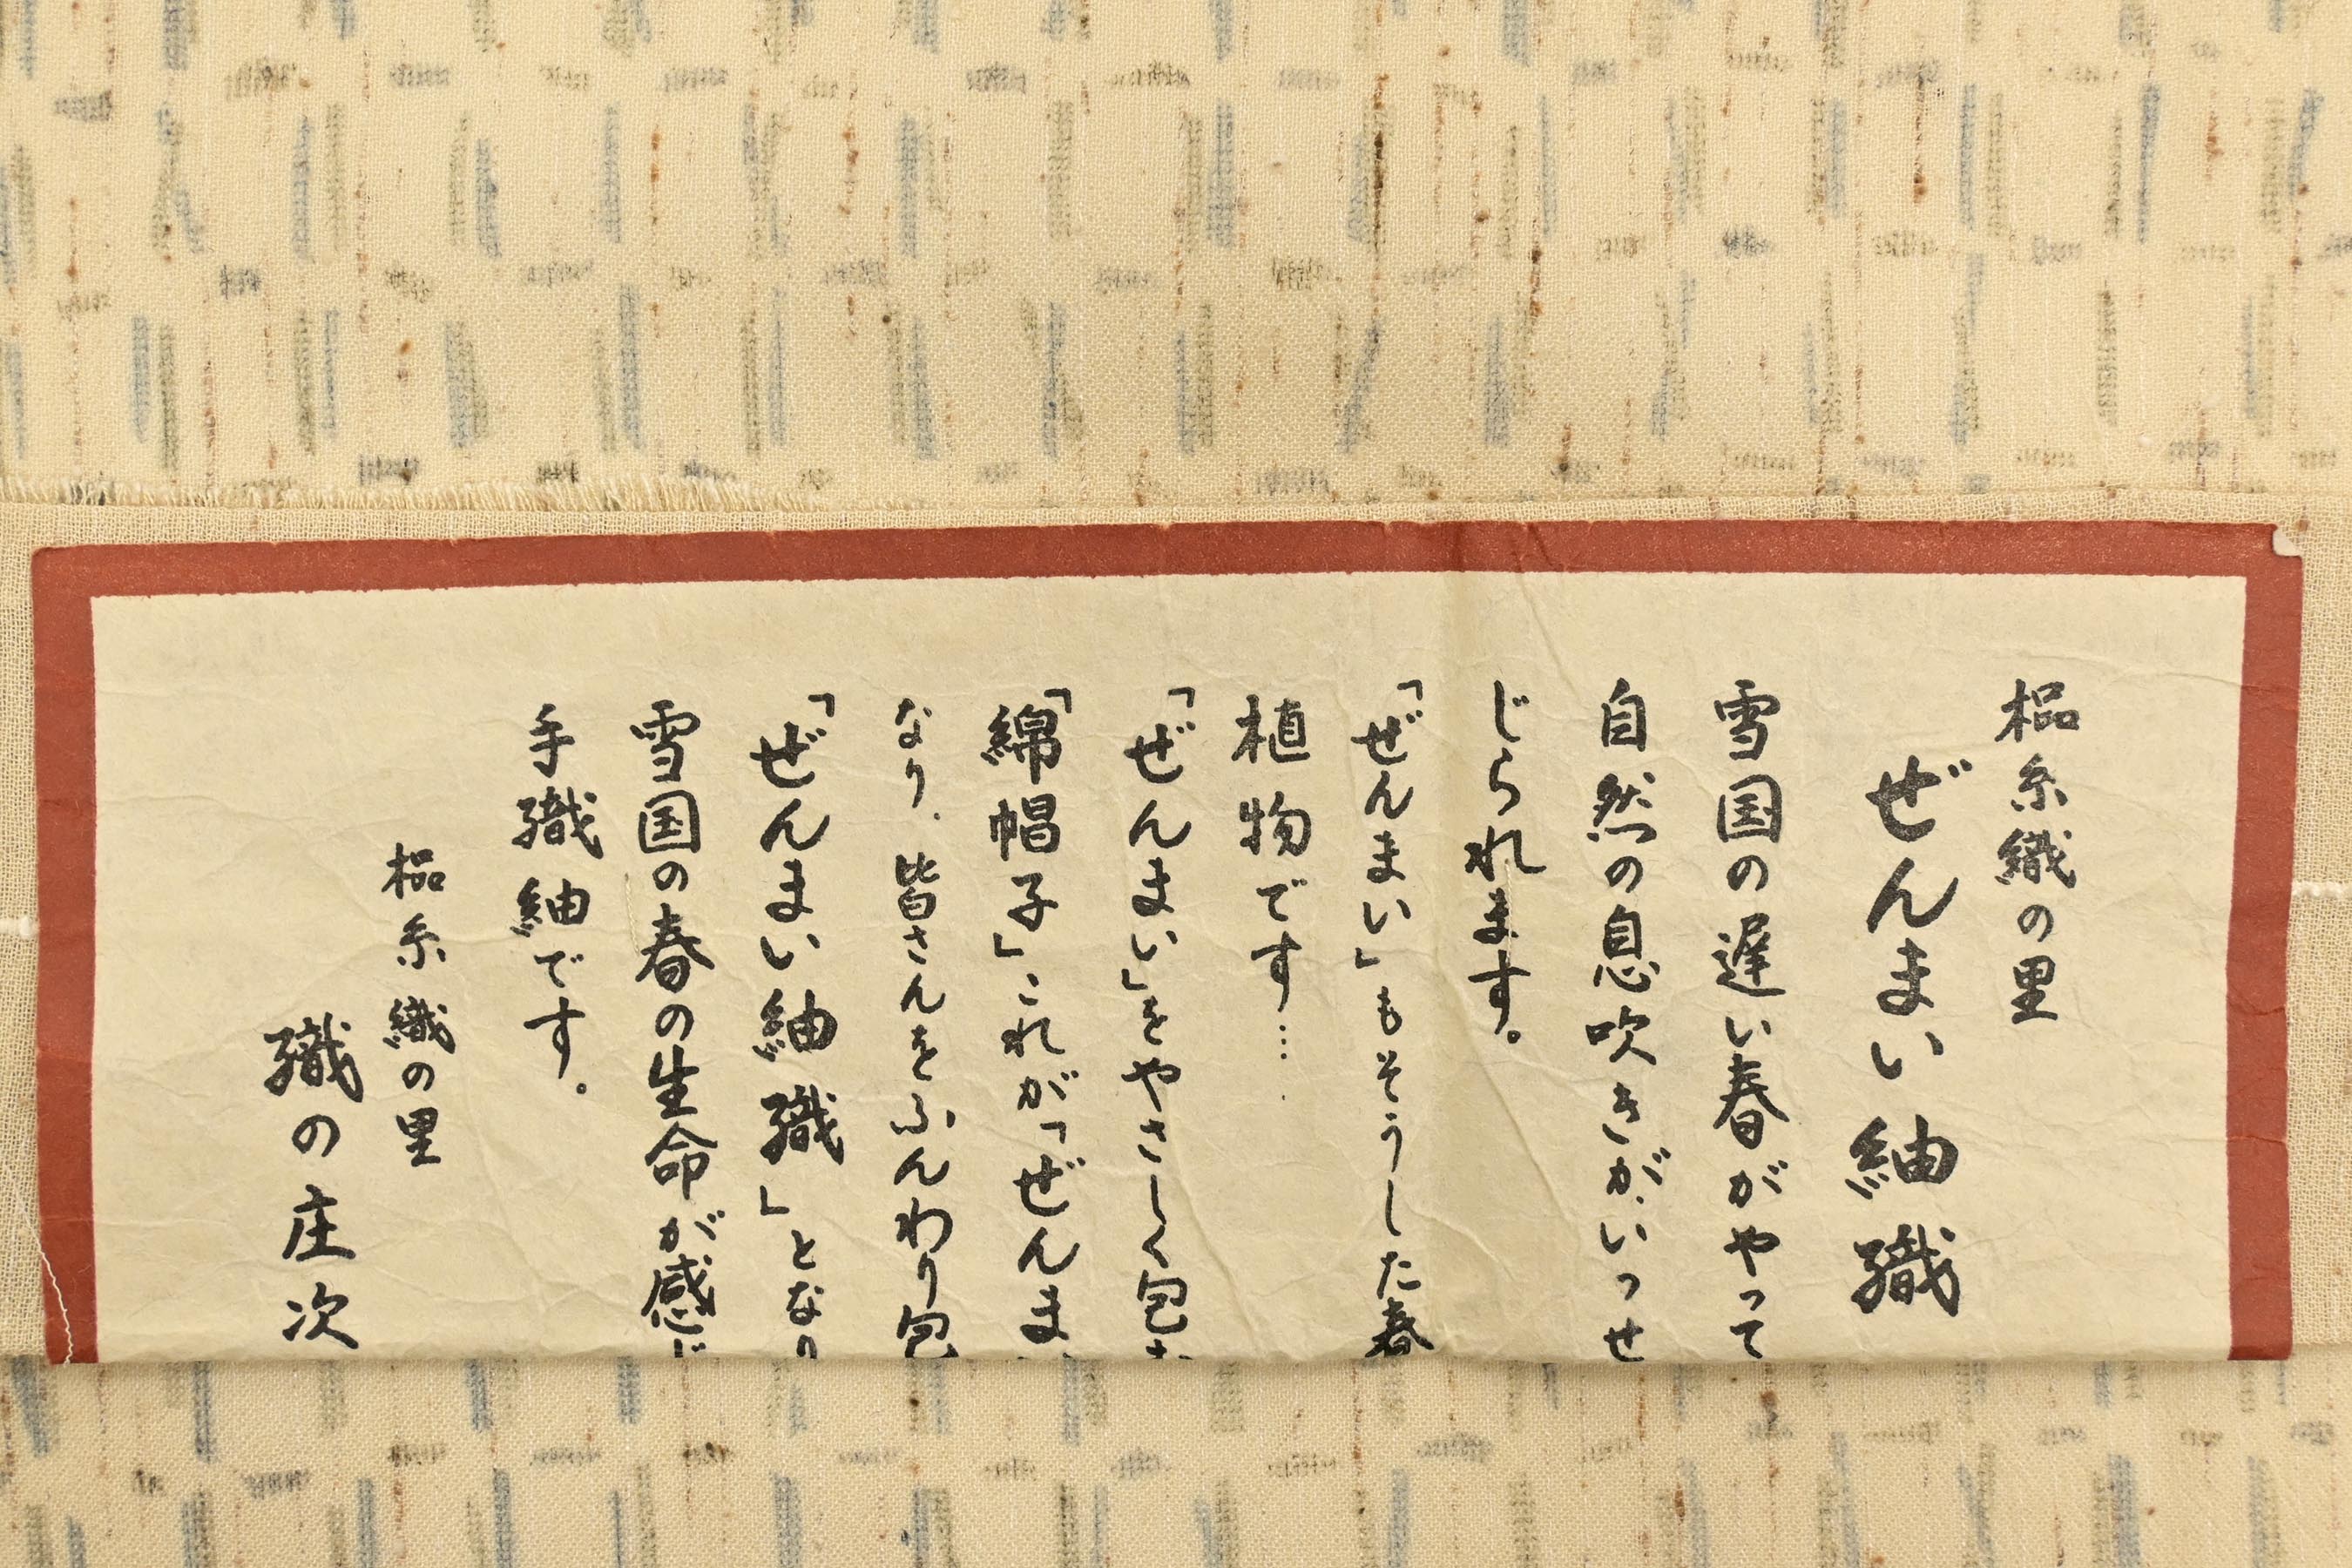 榀糸織の里
ぜんまい紬織
雪国の遅い春がやって
自然の息吹きが、いっせ
じられます。
「ぜんまい」もそうした春
植物です…
「ぜんまい」をやさしく包
「綿帽子」これが「ぜんま
なり、皆さんをふんわり包
「ぜんまい紬織」とな
雪国の春の生命が感じ
手織紬です。
榀糸織の里
織の庄次